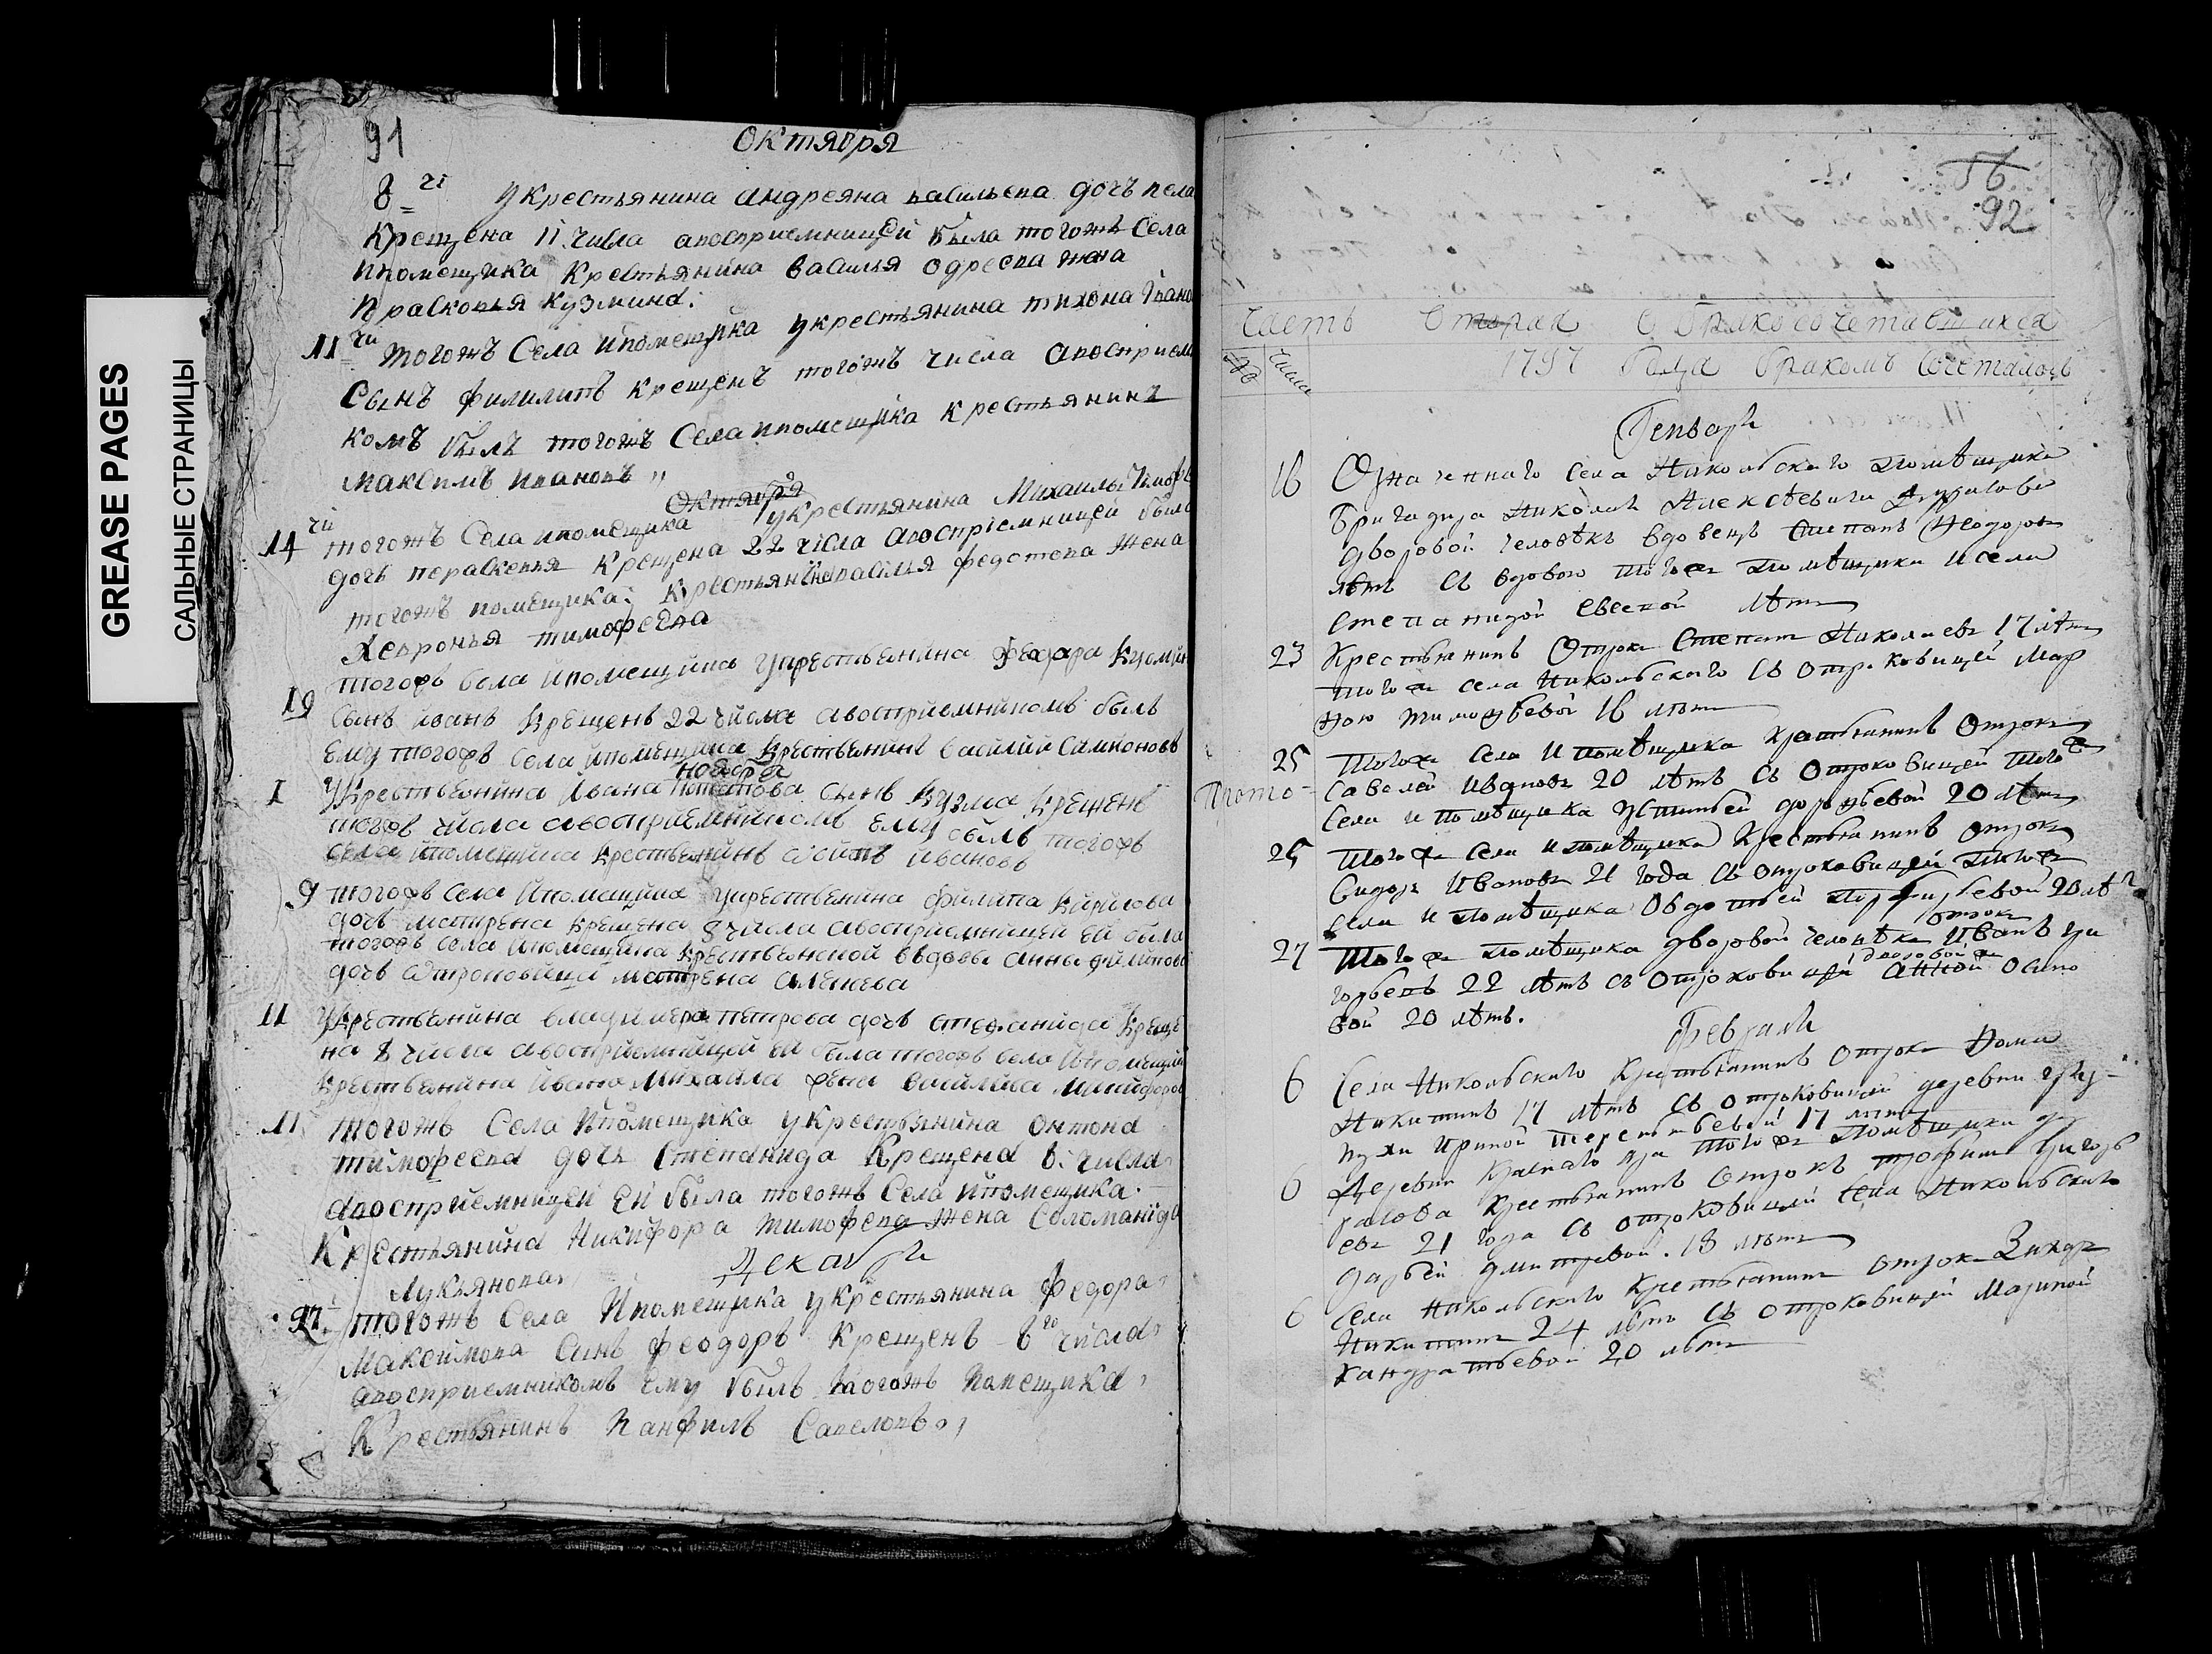 GREASE PAGES
САЛЬНЫЕ СТРАНИЦЫ
91
Октября
8 чі у крестьянина андреяна васильева дочь пела
крещена 11 числа авосприемницей была тогожъ Села
ипомещика крестьянина василья жена
Прасковья кузмина.
11 чи тогожъ Села ипомещика укрестьянина тихона Ивано
Сынъ филипъ крещенъ тогожъ числа авосприем
комъ былъ тогожъ Села ипомещика крестьянинъ
максимъ ивановъ
Октября
14 чи тогожъ Села ипомещика укрестьянина Михаилы Тимофе
дочь параскевья крещена 22 числа авосприемницей была
тогожъ помещика крестьянина василья федотова жена
Хевронья тимофеева
19 тогожъ села ипомещика укрестьянина Федора Кузмин
сынъ иванъ крещенъ 22 числа авосприемникомъ былъ
ему тогожъ села ипомещика крестьянинъ василий Самионовъ
ноября
1 Укрестьянина ивана потапова сынъ кузма крещенъ
тогожъ числа авосприемникомъ ему былъ тогожъ
села ипомещика крестьянинъ ивановъ
9 тогожъ села ипомещика укрестьянина филипа кирилова
дочь матрена крещена 8 числа авосприемницей ей была
тогожъ села ипомещика крестьянской вдовы анны филиповы
дочь отроковица матрена алексева
11 Укрестьянина владимера петрова дочь стефанида креще
на 8 числа авосприемницей ей была тогожъ села ипомещик
крестьянина ивана михаила жена василиса никифоров
11 тогожъ Села ипомещика укрестьянина онтона
тимофеева дочь Степанида Крещена 6. числа
авосприемницей ей была тогожъ Села ипомещика
Крестьянина Никифора тимофева жена Соломанида
Лукьянова
Декабря
27 тогожъ Села ипомещика укрестьянина Федора
Максимова Синъ феодоръ крещенъ 6 го числа
авосприемникомъ ему былъ тогожъ помещика
Крестьянинъ Панфилъ Савеловъ
56
92
Часть Вторая О бракосочетавшихся
Числа
1797 Года бракомъ Сочеталось
Генварь
16 Означеннаго села Никольскаго помѣщика
бригадира Николая Алексѣевича
дворовой человѣкъ вдовецъ Степанъ Феодоровъ
лѣтъ съ вдовою тогожъ помѣщика и села
Степанидой Евсевой лѣтъ
23 Крестьянинъ Отрокъ Степанъ Николаевъ 17 лѣтъ
тогожъ села Никольскаго съ отроковицей Мар
ѳою тимофѣевой 16 лѣтъ
25 Тогожъ села и помѣщика крестьянинъ Отрокъ
Савелей Ивановъ 20 лѣтъ съ отроковицей того ж
села и помѣщика устиньей дорофѣевой 20 лѣтъ
25 Тогожъ села и помѣщика крестьянинъ отрокъ
Сидоръ Ивановъ 21 года съ отроковицей того ж
села и помѣщика овдотьей порфирьевой 20 лѣтъ
отрокъ
27 Тогожъ помѣщика дворовой человѣкъ Иванъ гри
дворовой ж
горьевъ 22 лѣтъ съ отроковицей анной осипо
вой 20 лѣтъ.
Февраль
6 Села Никольскаго крестьянинъ отрокъ Фома
Никитинъ 17 лѣтъ съ отроковицей деревни
Ириной терентьевой 17 лѣтъ
6 Деревни тогожъ помѣщика
крестьянинъ отрокъ трофимъ григорь
евъ 21 года съ отроковицей села Никольскаго
дарьей дмитревой. 18 лѣтъ
6 Села Никольскаго крестьянинъ отрокъ Захаръ
Никитинъ 24 лѣтъ съ отроковицей Мариной
Кандратьевой 20 лѣтъ